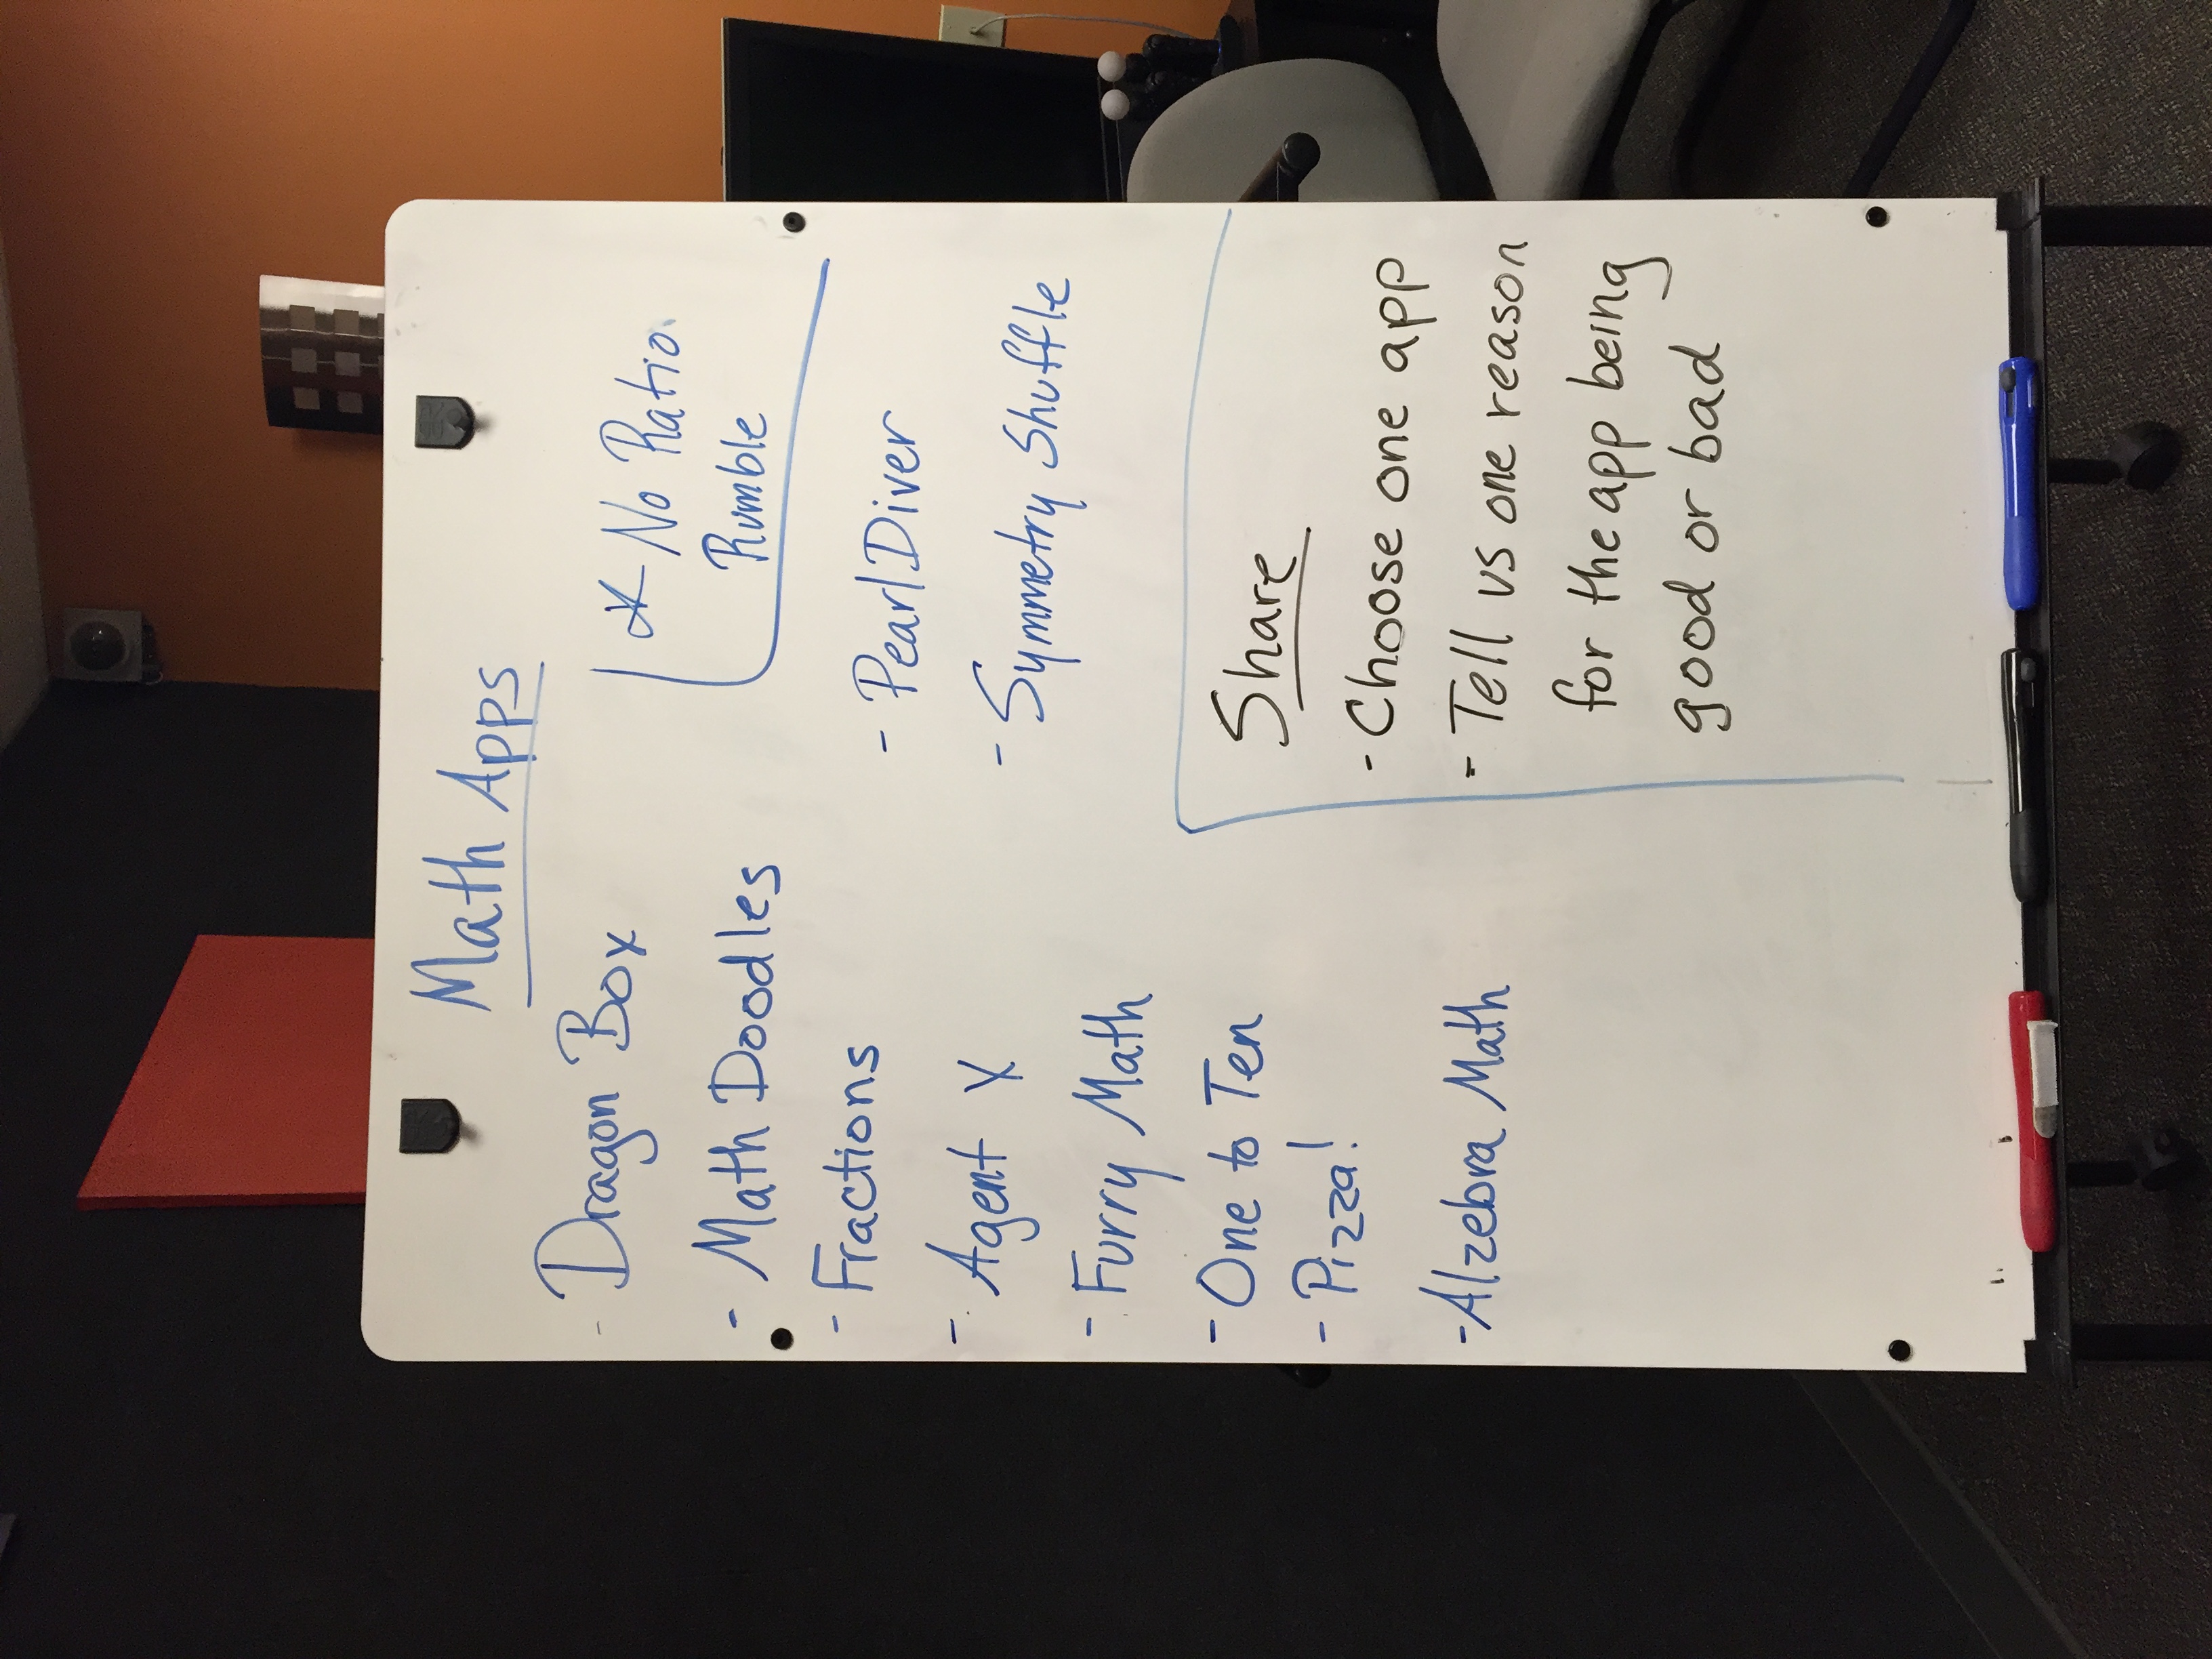 Math Apps
- Dragon Box
- Math Doodles
- Fractions
- Agent X
- Furry Math
- One to Ten
- Pizza!
- Alzebra Math
* No Ratio
Rumble
- Pearl Diver
- Symmetry Shuffle
Share
- Choose one app
- Tell us one reason
for the app being
good or bad